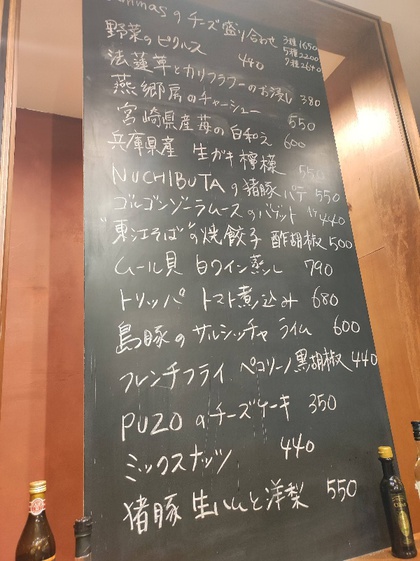 のチーズ盛り合わせ 3種1650
5種2200
7種2640
野菜のピクルス 440
法蓮草とカリフラワーのお浸し 380
燕郷房のチャーシュー 550
宮崎県産苺の白和え 600
兵庫県産 生ガキ 檸檬 550
NUCHIBUTAの猪豚パテ 550
ゴルゴンゾーラムースのバゲット 440
"東江そば"の焼餃子 酢胡椒 500
ムール貝 白ワイン蒸し 790
トリッパ トマト煮込み 680
島豚のサルシッチャ ライム 600
フレンチフライ ペコリーノ黒胡椒 440
PUZOのチーズケーキ 350
ミックスナッツ 440
猪豚 生ハムと洋梨 550